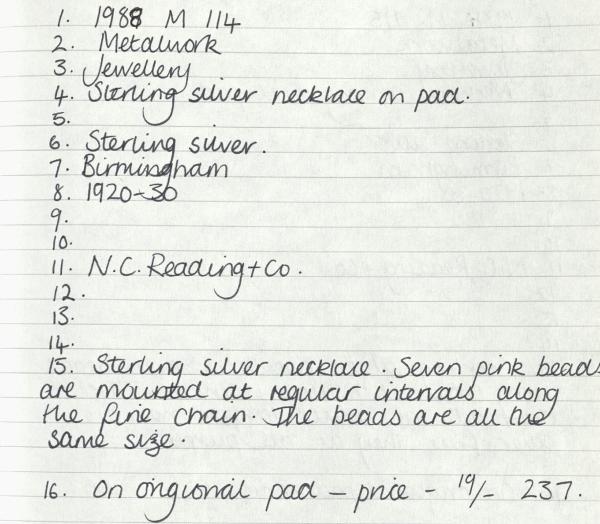 1. 1988 M 114
2. Metalwork
3. Jewellery
4. Sterling silver necklace on pad.
5.
6. Sterling silver.
7. Birmingham
8. 1920-30
9.
10.
11. N.C. Reading + Co.
12.
13.
14.
15. Sterling silver necklace. Seven pink beads
are mounted at regular intervals along
the fine chain. The beads are all the
same size.
16. On origional pad - price - 19/- 237.